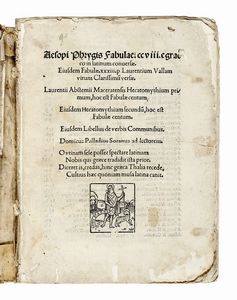 Aesopi Phrygis Fabulae: ccviii. e græ
co in latinum conuersæ.
Eiusdem Fabulæ. xxxiii. p Laurentium Vallam
virum Clarissimũ versæ.
Laurentii Abstemii Maceratensis Hecatomythium pri
mum, hoc est Fabulæ centum.
Eiusdem Hecatomythium secundũ, hoc est
Fabulæ centum.
Eiusdem Libellus de verbis Communibus.
Domicus Palladius Soranus ad lectorem.
O vtinam sese posset spectare latinum
Nobis qui græce tradidit ista prior.
Diceret is, credas, hinc græca Thalia recede,
Cultius hæc quoniam musa latina canit.